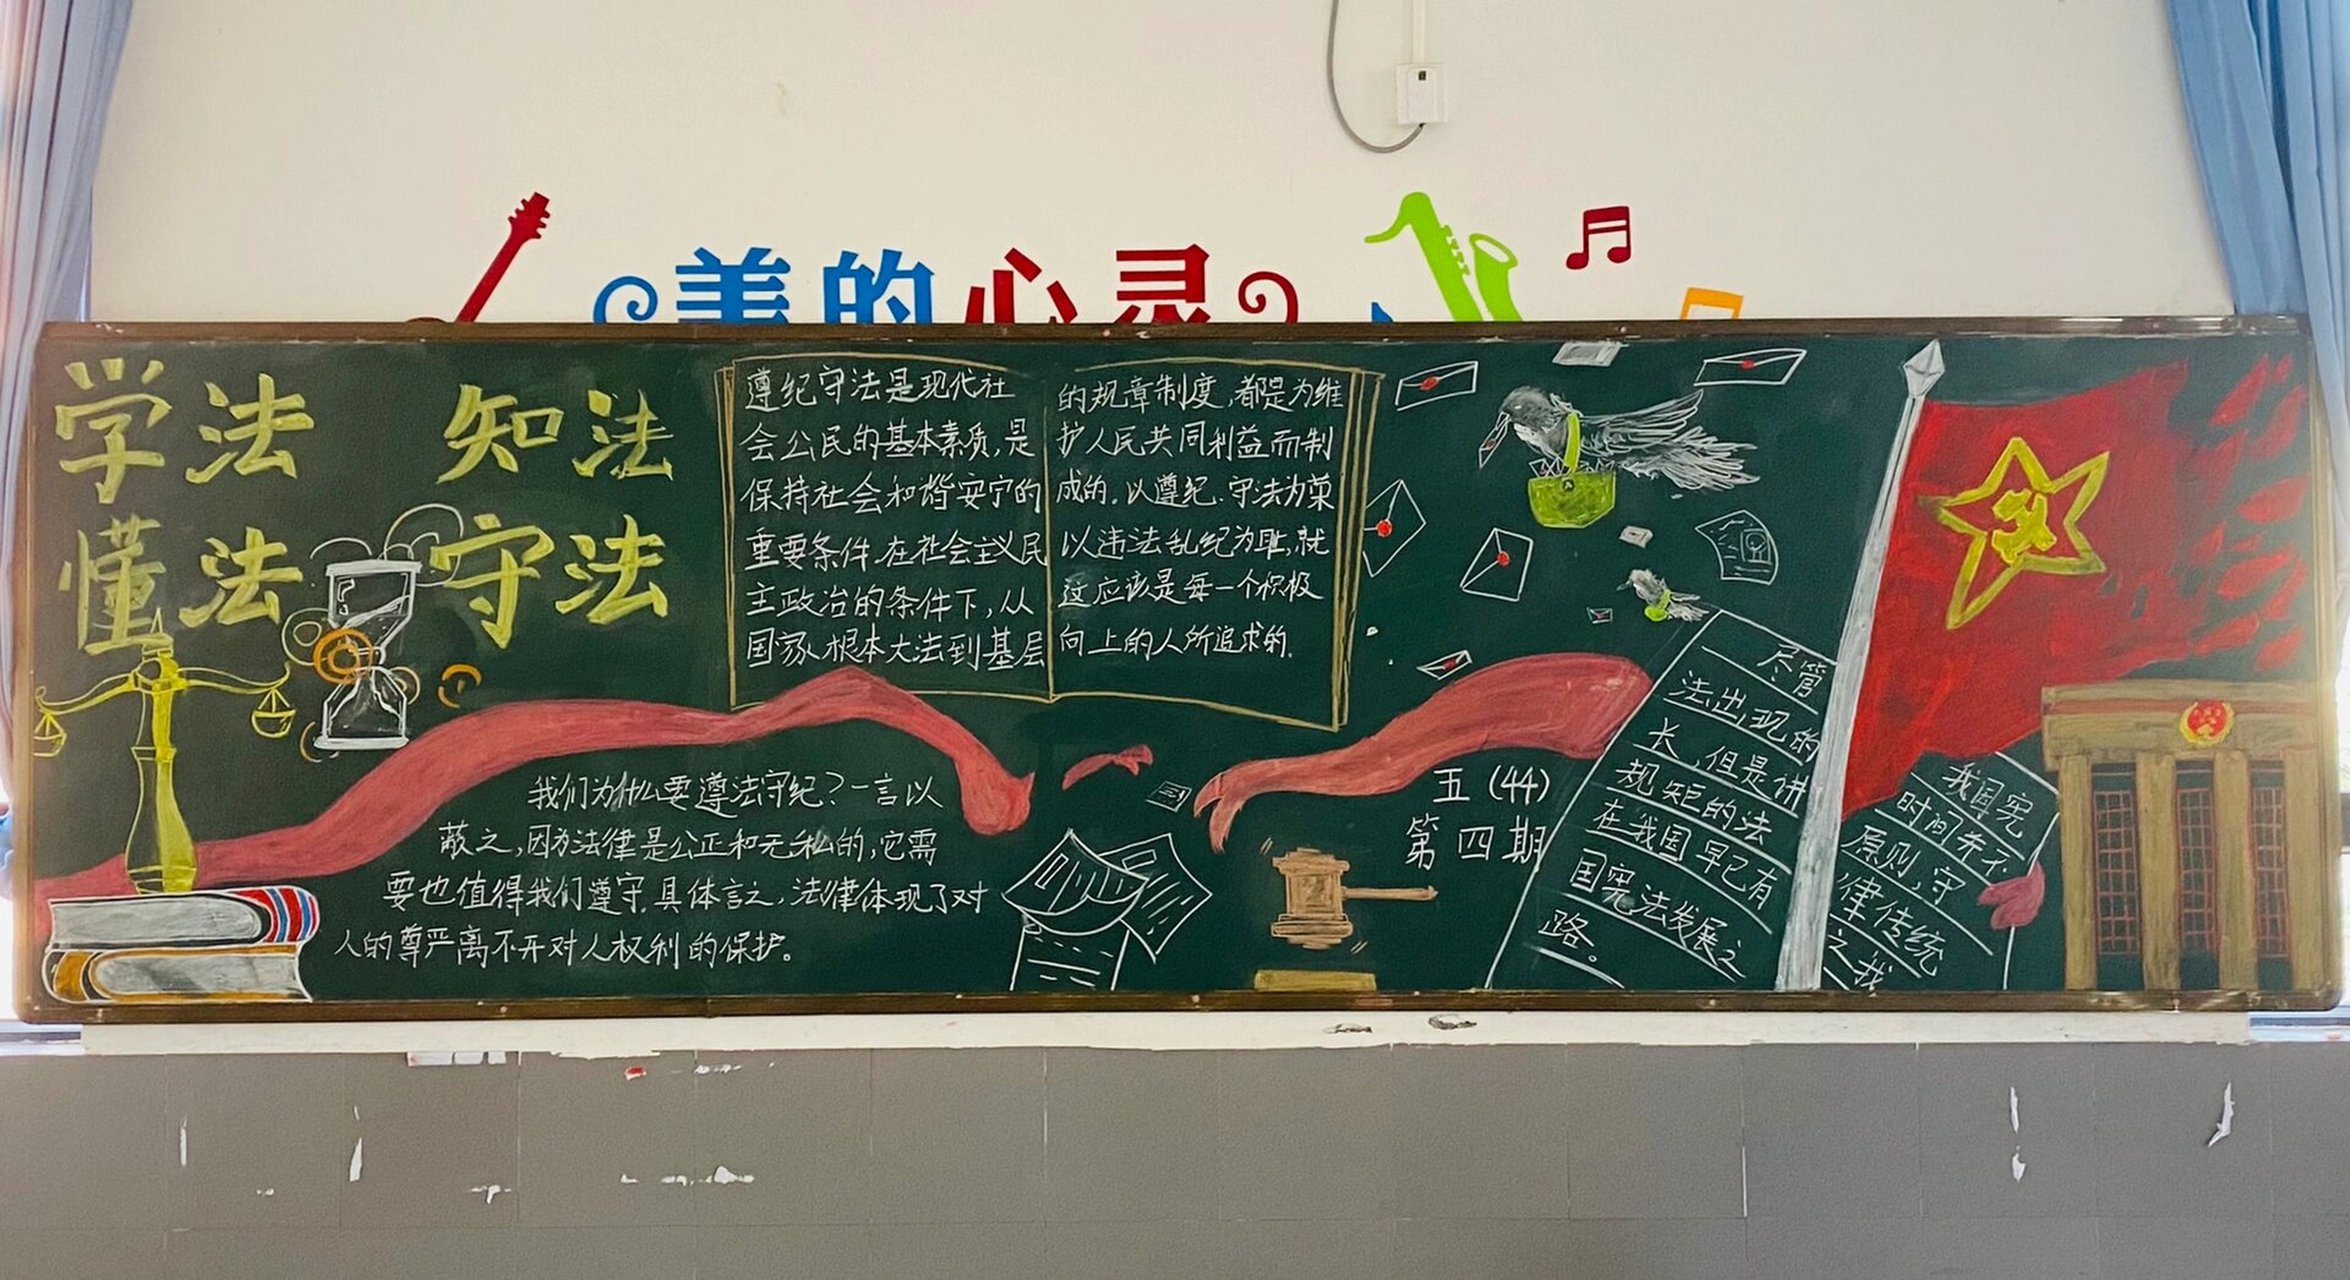 美的心灵
学法 知法
懂法 守法
遵纪守法是现代社
会公民的基本素质,是
保持社会和谐安宁的
重要条件.在社会主义民
主政治的条件下,从
国家根本大法到基层
的规章制度,都是为维
护人民共同利益而制
成的.以遵纪.守法为荣
以违法乱纪为耻,就
这应该是每一个积极
向上的人所追求的.
我们为什么要遵法守纪?一言以
蔽之,因为法律是公正和无私的,它需
要也值得我们遵守.具体言之,法律体现了对
人的尊严离不开对人权利的保护。
五(44)
第四期
尽管
法出现的
长,但是讲
规矩的法
在我国早已有
国宪法发展之
路。
我国宪
时间并不
原则,守
律传统
之我